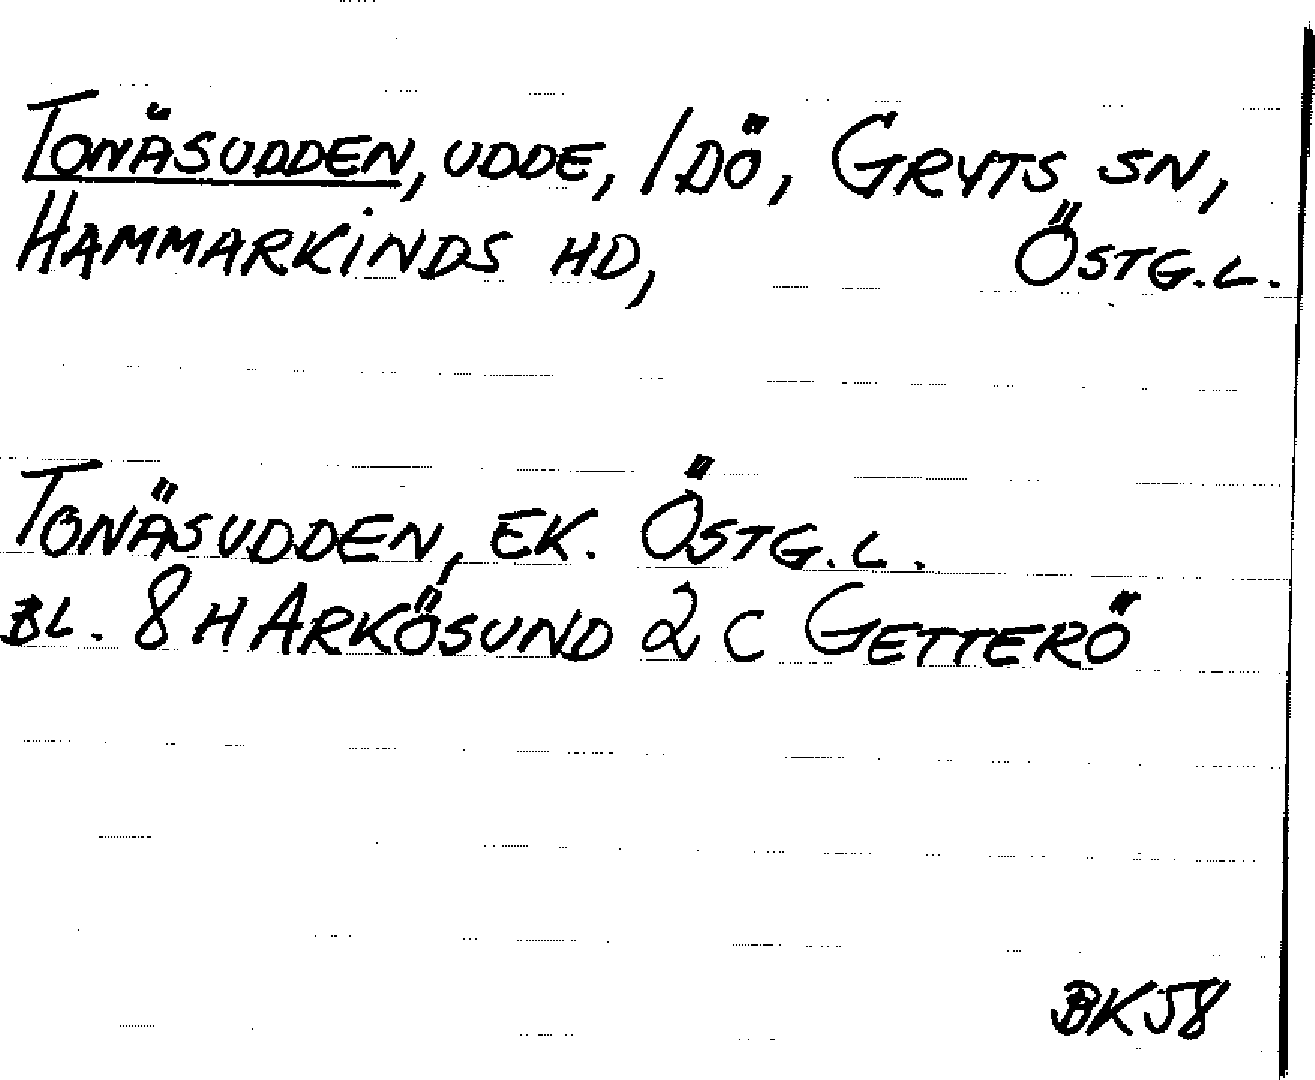 TONÄSUDDEN, UDDE, IDÖ, GRYTS SN,
HAMMARKINDS HD, ÖSTG.L.
TONÄSUDDEN, EK. ÖSTG.L.
BL. 8 H ARKÖSUND 2 C GETTERÖ
BK58